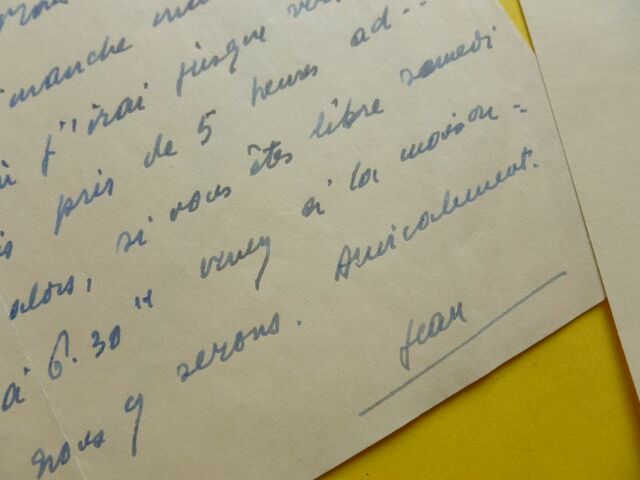 manche
j'irai jusque
près de 5 heures
alors, si vous êtes libre samedi
à 6.30 venez à la maison -
nous y serons. Amicalement.
Jean